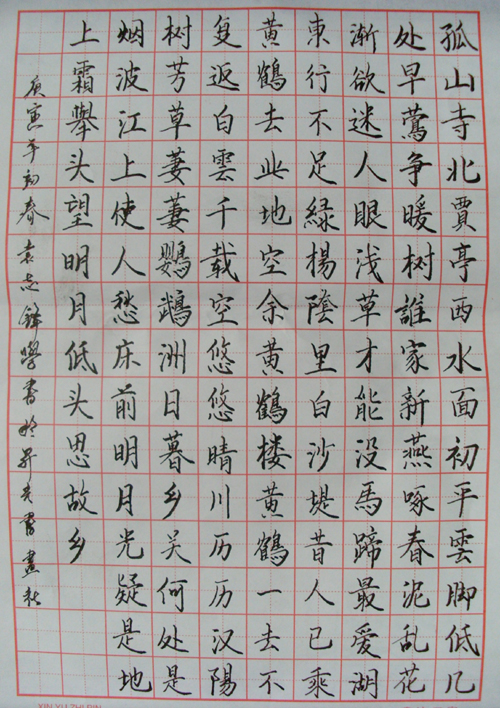 孤山寺北賈亭西水面初平雲脚低几
处早鶯争暖树誰家新燕啄春泥乱花
渐欲迷人眼浅草才能没馬蹄最愛湖
東行不足緑楊陰里白沙堤昔人已乘
黄鶴去此地空余黄鶴楼黄鶴一去不
复返白雲千载空悠悠晴川历历汉陽
树芳草萋萋鹦鹉洲日暮乡关何处是
烟波江上使人愁床前明月光疑是地
上霜舉头望明月低头思故乡
庚寅年初春袁志鋒學書於書畫社